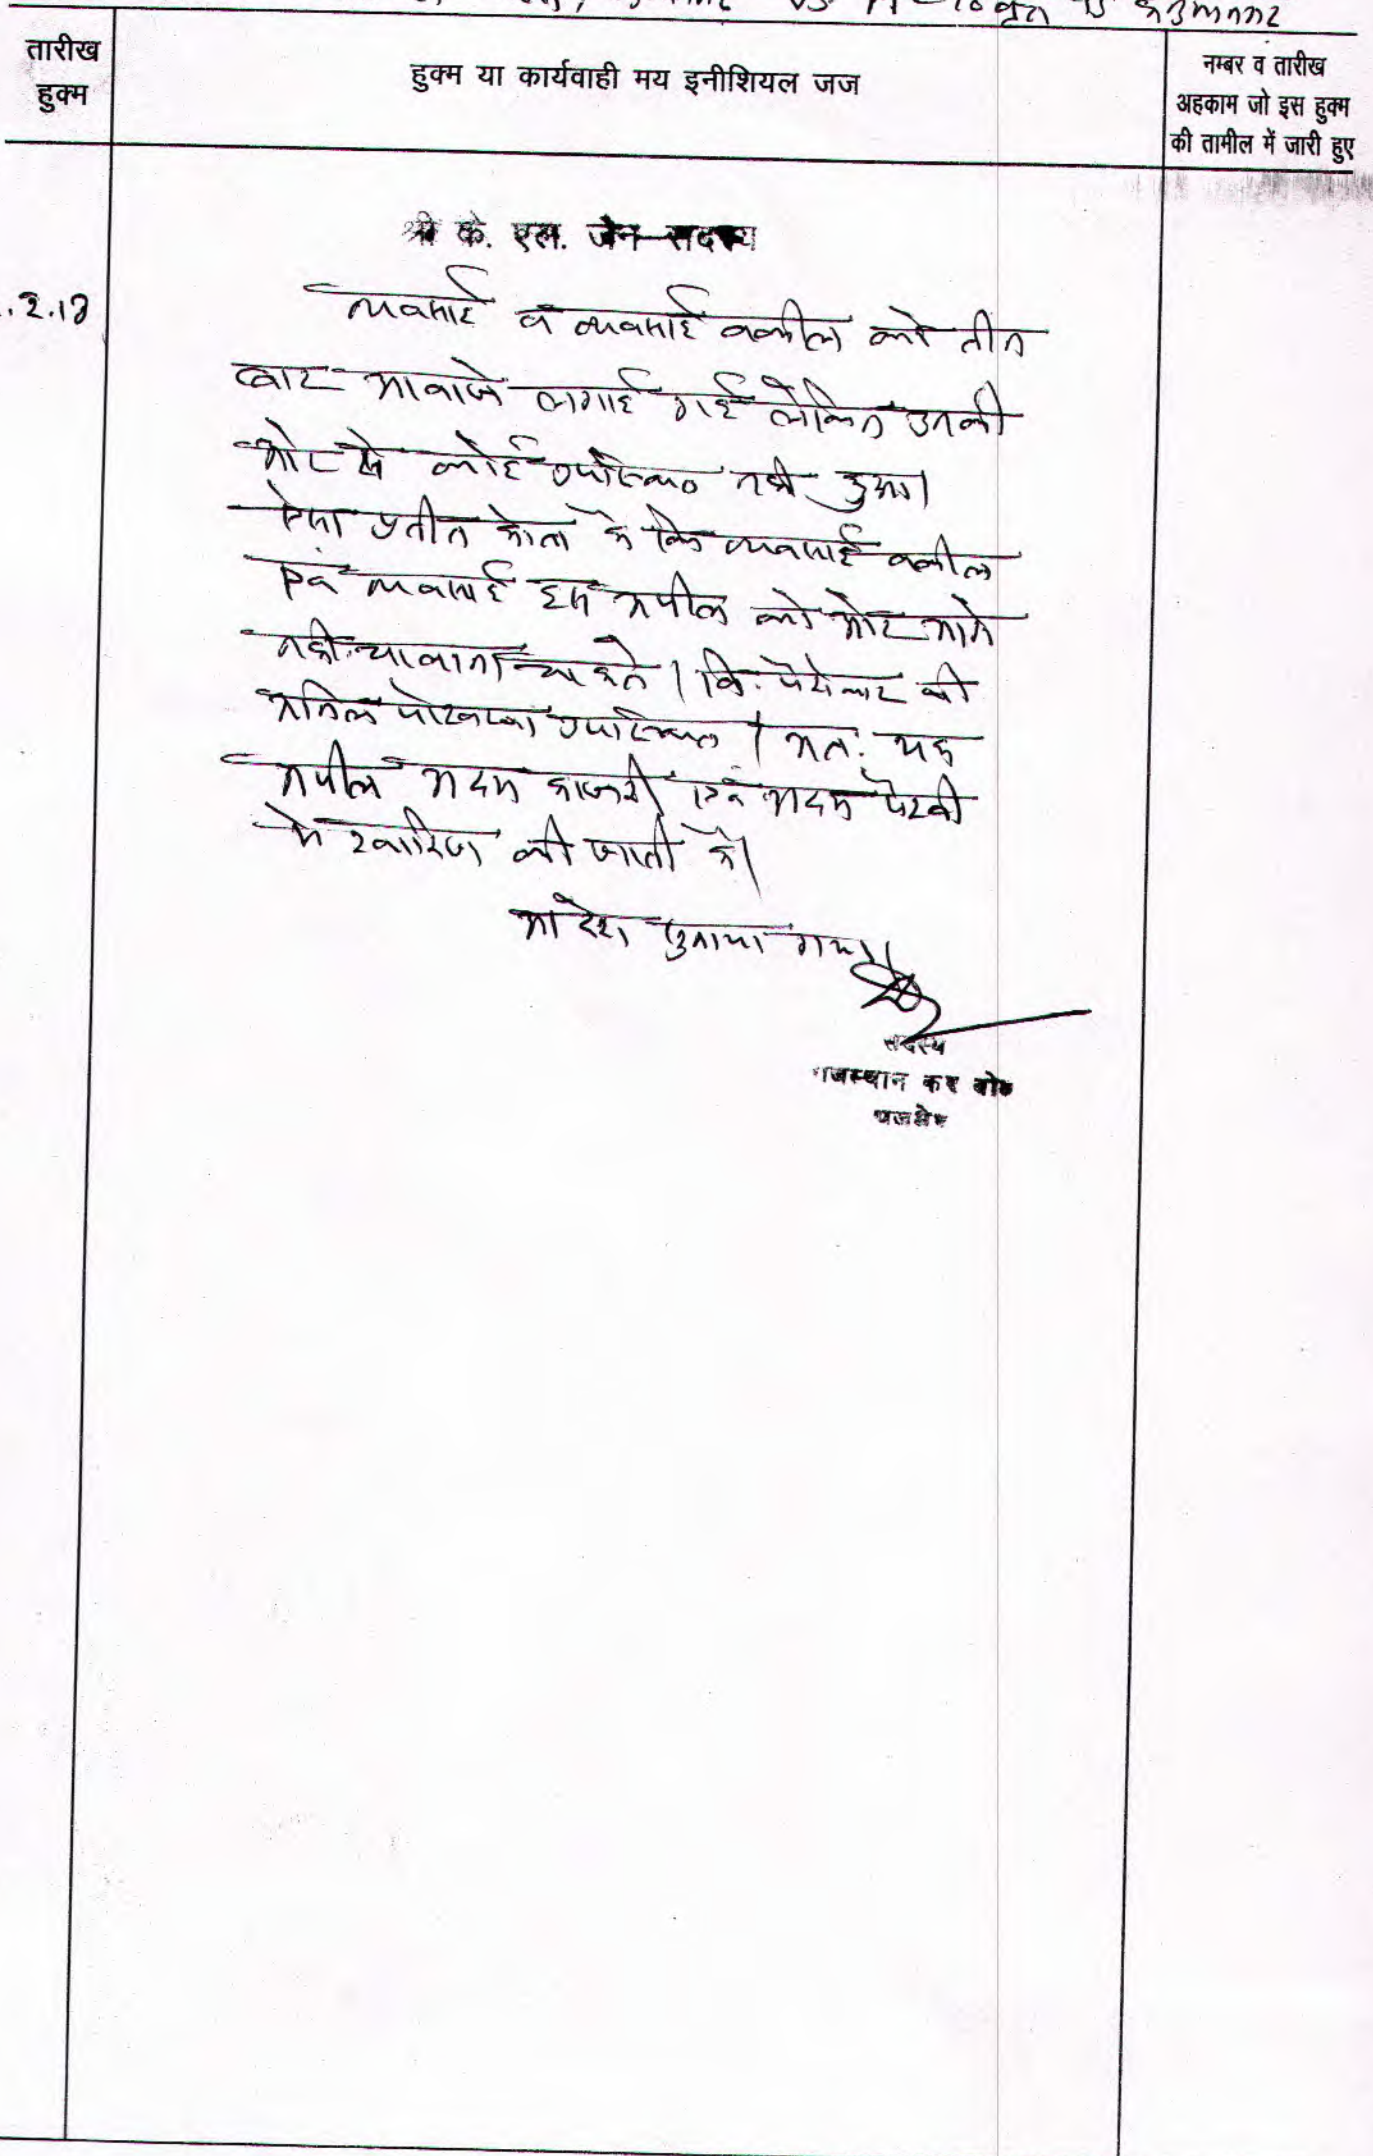 vs
हनुमानगढ़
तारीख
हुक्म
हुक्म या कार्यवाही मय इनीशियल जज
नम्बर व तारीख
अहकाम जो इस हुक्म
की तामील में जारी हुए
श्री के. एल. जैन-सदस्य
.2.18
व्यवसाई व व्यवसाई वकील को तीन
बार आवाजे लगाई गई लेकिन उनकी
ओर से कोई उपस्थित नही हुआ।
ऐसा प्रतीत होता है कि व्यवसाई वकील
एवं व्यवसाई इस अपील को और आगे
नही चलाना चाहते। वि. की
अनिल पोखरणा उपस्थित। अतः यह
अपील अदम हाजरी एवं अदम पैरवी
मे खारिज की जाती है।
आदेश सुनाया गया।
सदस्य
राजस्थान कर बोर्ड
अजमेर